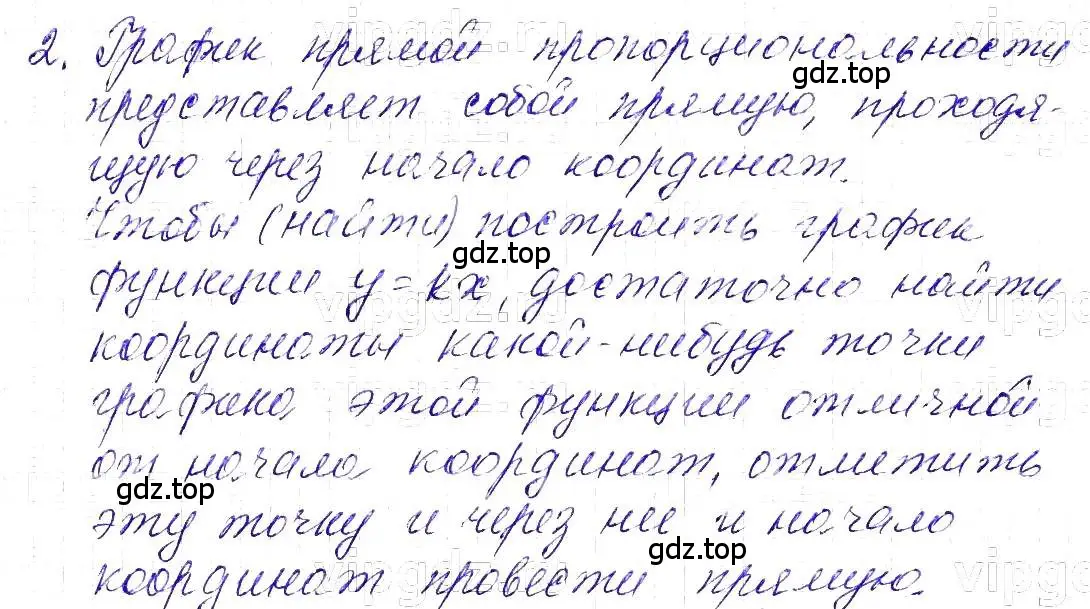 2. График прямой пропорциональности
gdz.top
представляет собой прямую, проходя-
щую через начало координат.
Чтобы (найти) построить график
gdz.top
функции y = kx, достаточно найти
координаты какой-нибудь точки
графика этой функции отличной
от начала координат, отметить
gdz.top
эту точку и через неё и начало
gdz.top
координат провести прямую.